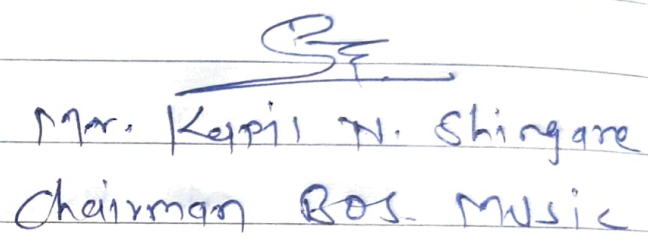 Mr. Kapil N. Shingare
Chairman BOS. Music